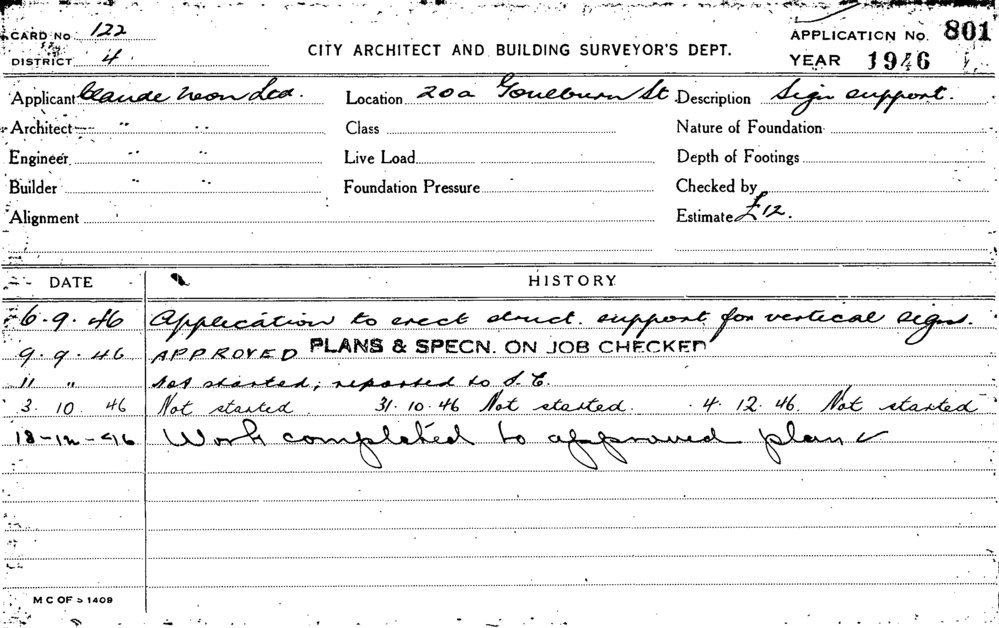 CARD No. 122
DISTRICT 4
CITY ARCHITECT AND BUILDING SURVEYOR'S DEPT.
APPLICATION No. 801
YEAR 1946
Applicant Claude Neon Ltd. Location 20a Goulburn St Description Sign support.
Architect " " Class Nature of Foundation
Engineer " " Live Load Depth of Footings
Builder " " Foundation Pressure Checked by
Alignment Estimate £12.
DATE HISTORY
6.9.46 Application to erect struct. support for vertical sign.
9.9.46 APPROVED PLANS & SPECN. ON JOB CHECKED
11 " Not started, reported to S. C.
3.10.46 Not started 31.10.46 Not started. 4.12.46. Not started
18-12-46 Work completed to approved plan
M C OF S 1409